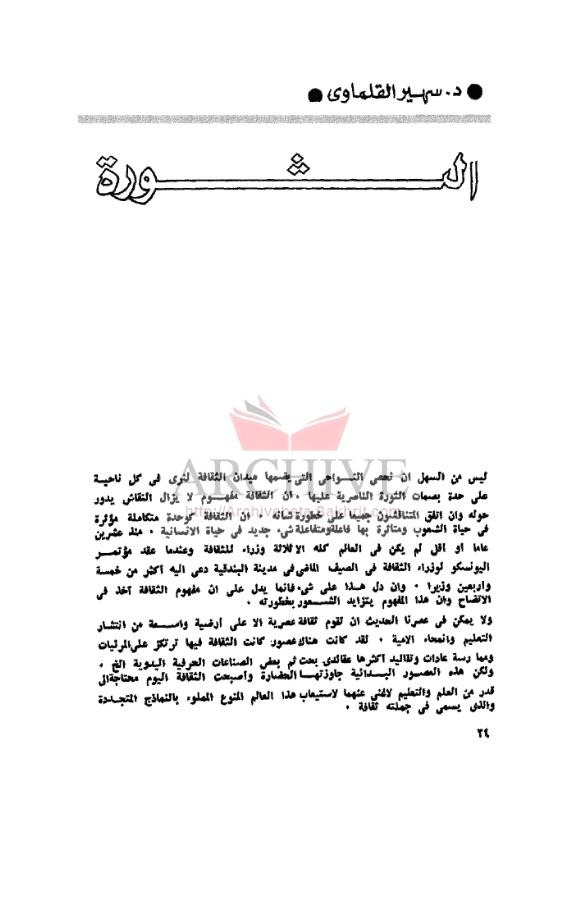 ● د. سهير القلماوى ●
الثورة
ARCHIVE
http://Archivebeta.Sakhrit.com
ليس من السهل ان نحصى النواحى التى يضمها ميدان الثقافة لنرى فى كل ناحية
على حدة بصمات الثورة الناصرية عليها . ان الثقافة مفهوم لا يزال النقاش يدور
حوله وان اتفق المتناقشون جميعا على خطورة شانه . ان الثقافة كوحدة متكاملة مؤثرة
فى حياة الشعوب ومتاثرة بها فاعلة ومتفاعلة شىء جديد فى حياة الانسانية . منذ عشرين
عاما او اقل لم يكن فى العالم كله الا ثلاثة وزراء للثقافة وعندما عقد مؤتمر
اليونسكو لوزراء الثقافة فى الصيف الماضى فى مدينة البندقية دعى اليه أكثر من خمسة
واربعين وزيرا . وان دل هذا على شىء فانما يدل على ان مفهوم الثقافة آخذ فى
الاتضاح وان هذا المفهوم يتزايد الشعور بخطورته .
ولا يمكن فى عصرنا الحديث ان تقوم ثقافة عصرية الا على أرضية واسعة من انتشار
التعليم وانمحاء الامية . لقد كانت هناك عصور كانت الثقافة فيها ترتكز على المرئيات
وممارسة عادات وتقاليد أكثرها عقائدى بحت ثم بعض الصناعات الحرفية اليدوية الخ .
ولكن هذه العصور البدائية جاوزتها الحضارة وأصبحت الثقافة اليوم محتاجة الى
قدر من العلم والتعليم لاغنى عنهما لاستيعاب هذا العالم المنوع المملوء بالنماذج المتجددة
والذى يسمى فى جملته ثقافة .
٢٤